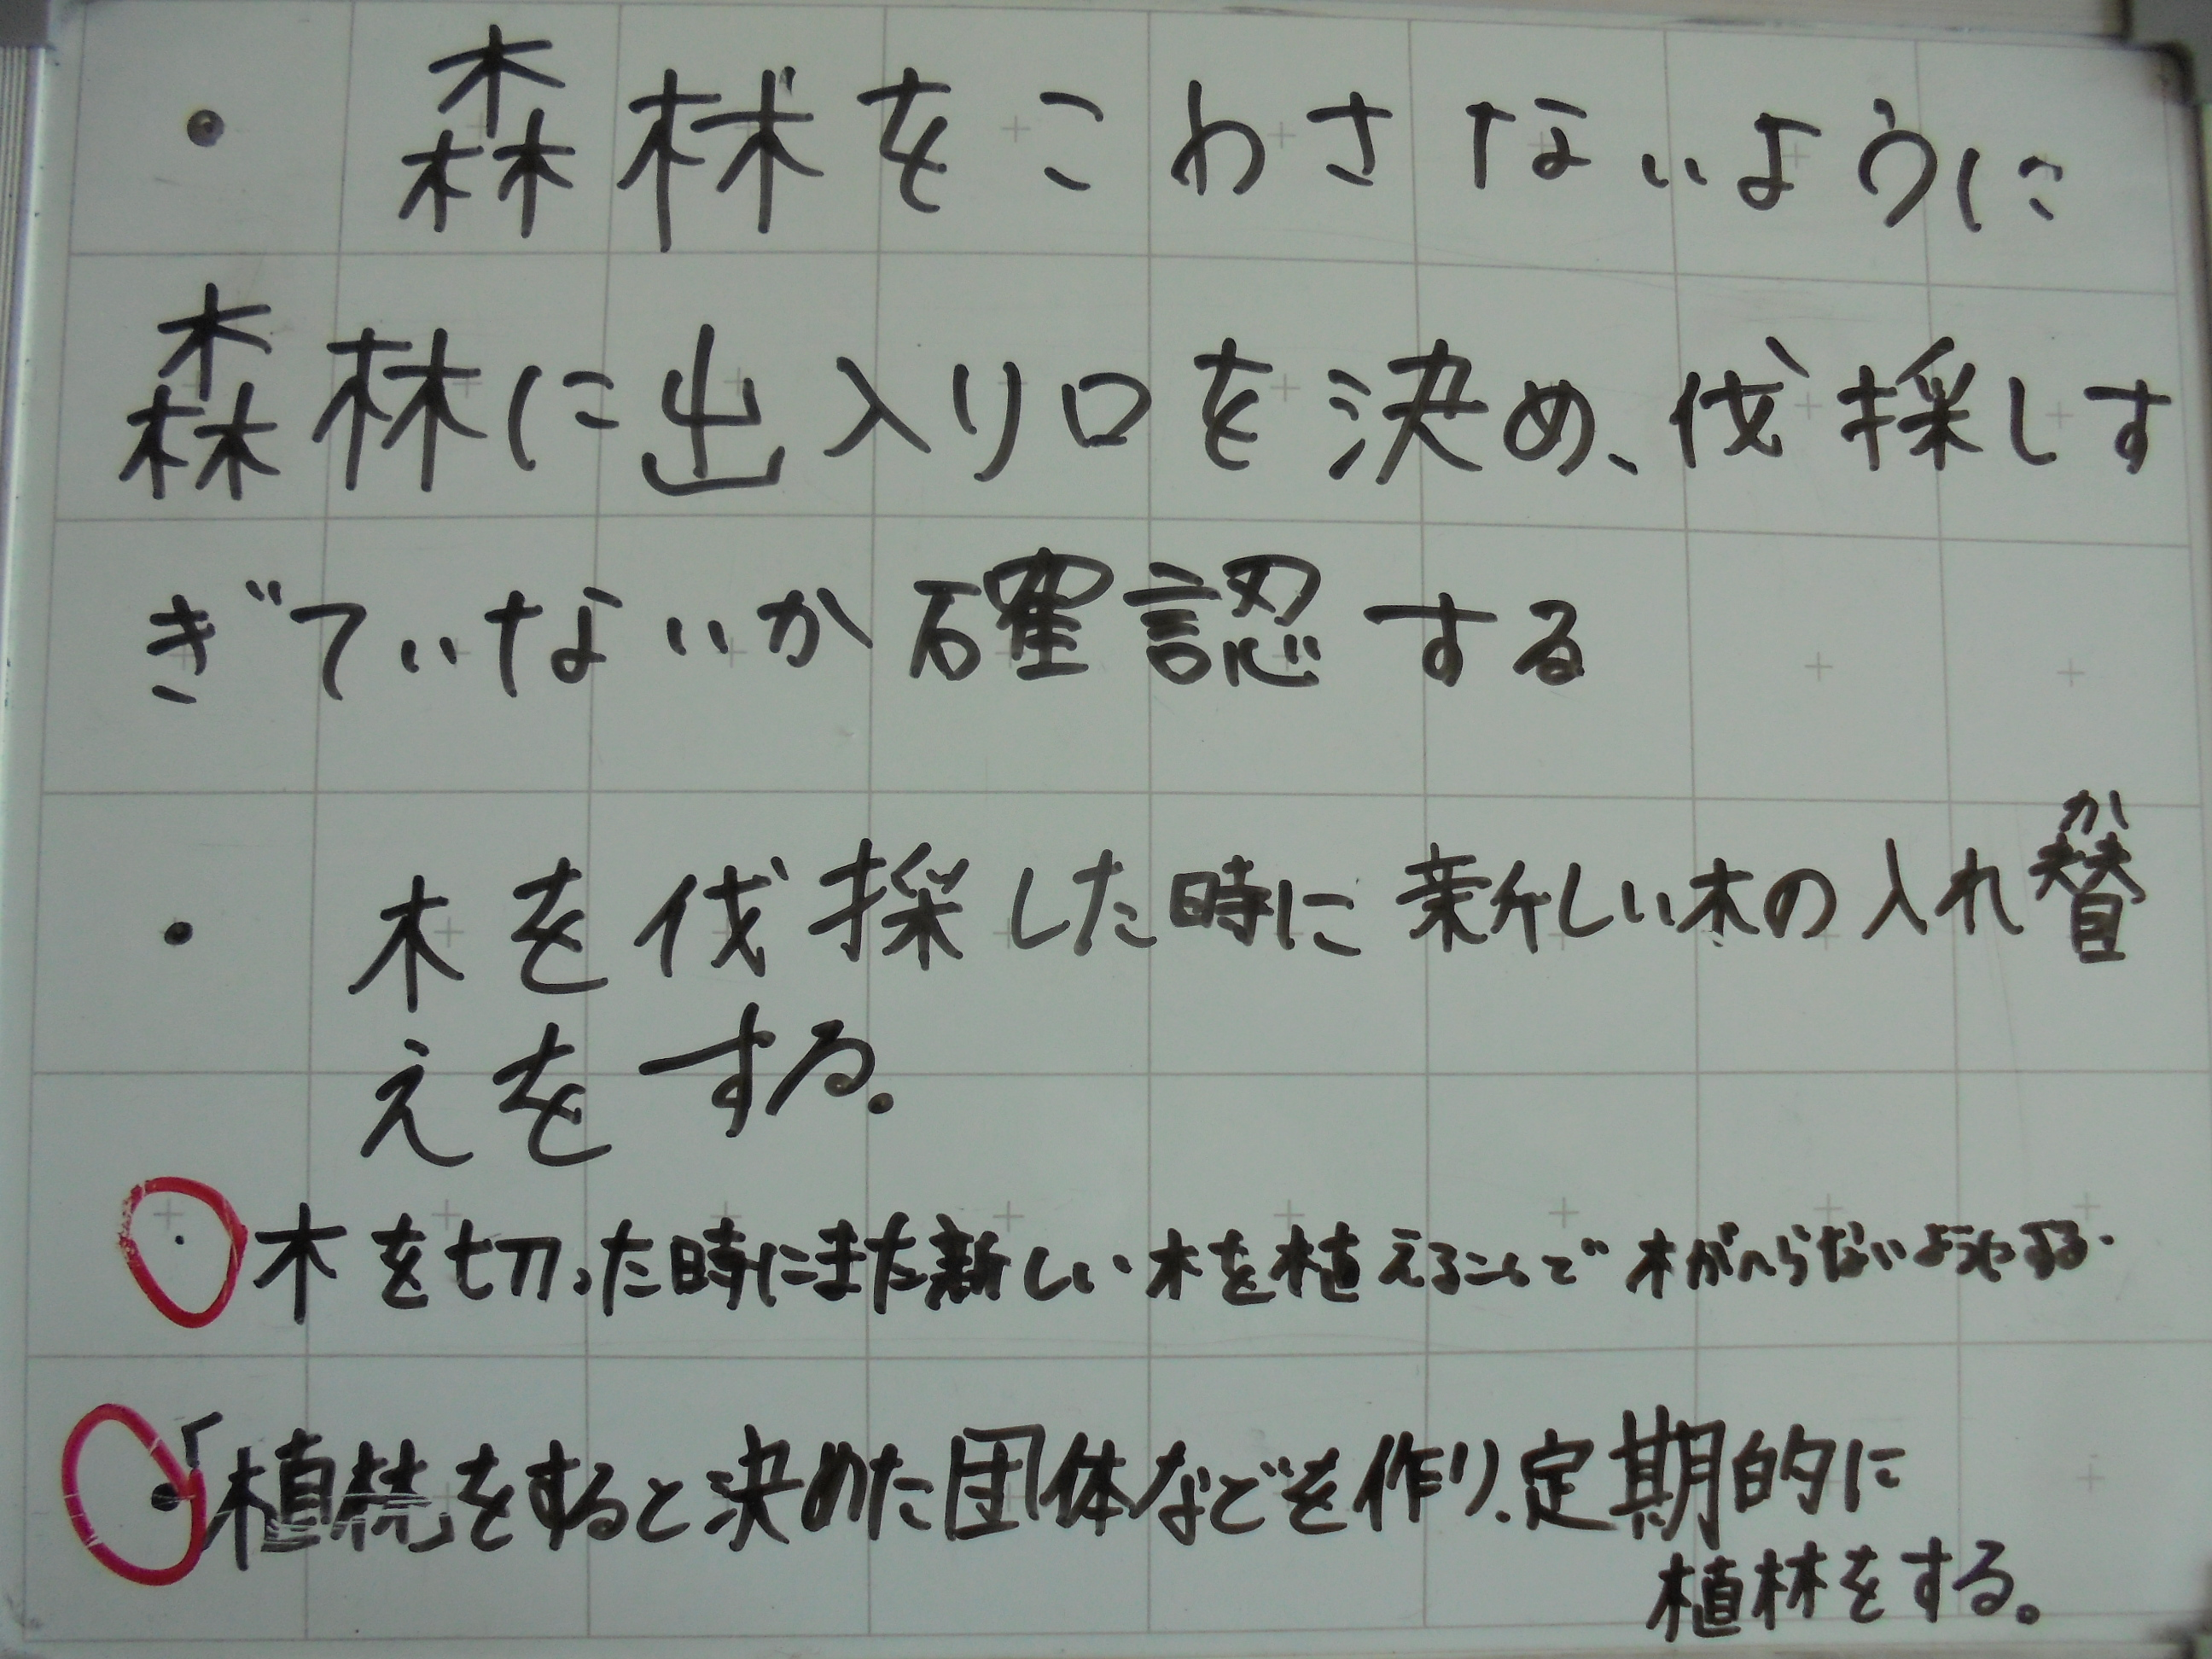 ・森林をこわさないように
森林に出入り口を決め、伐採しす
ぎていないか確認する
・木を伐採した時に新しい木の入れ替
か
えをする。
・木を切った時にまた新しい木を植えることで木がへらないようにする。
・「植林」をすると決めた団体などを作り、定期的に
植林をする。